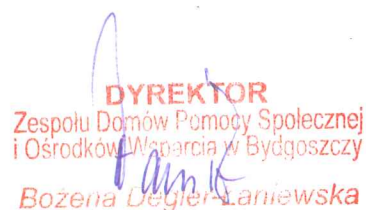 DYREKTOR
Zespołu Domów Pomocy Społecznej
i Ośrodków Wsparcia w Bydgoszczy
Bożena Degler-Łaniewska